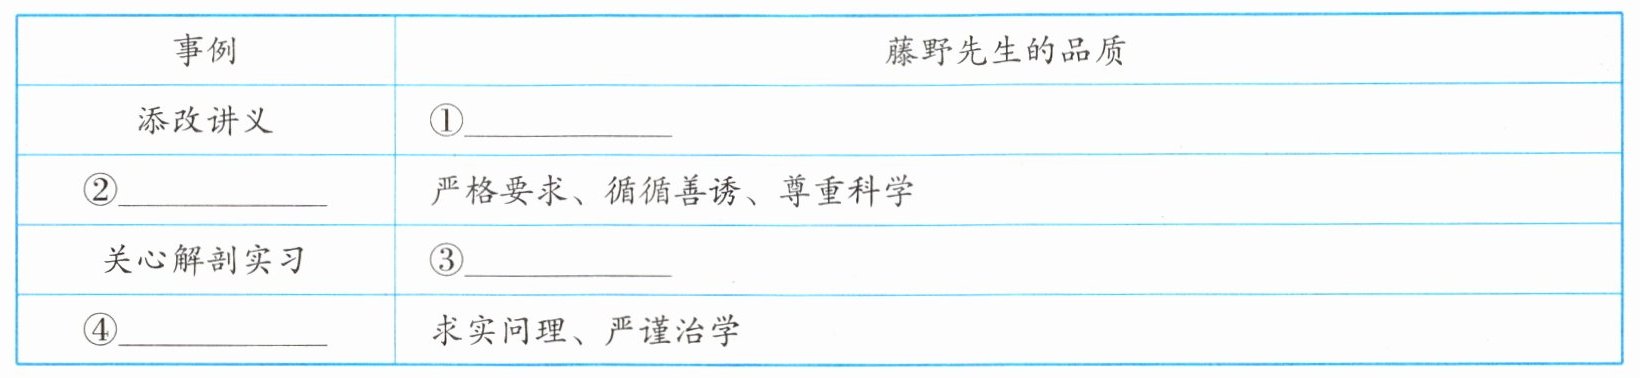 事例 藤野先生的品质
添改讲义 ①____________
②____________ 严格要求、循循善诱、尊重科学
关心解剖实习 ③____________
④____________ 求实问理、严谨治学